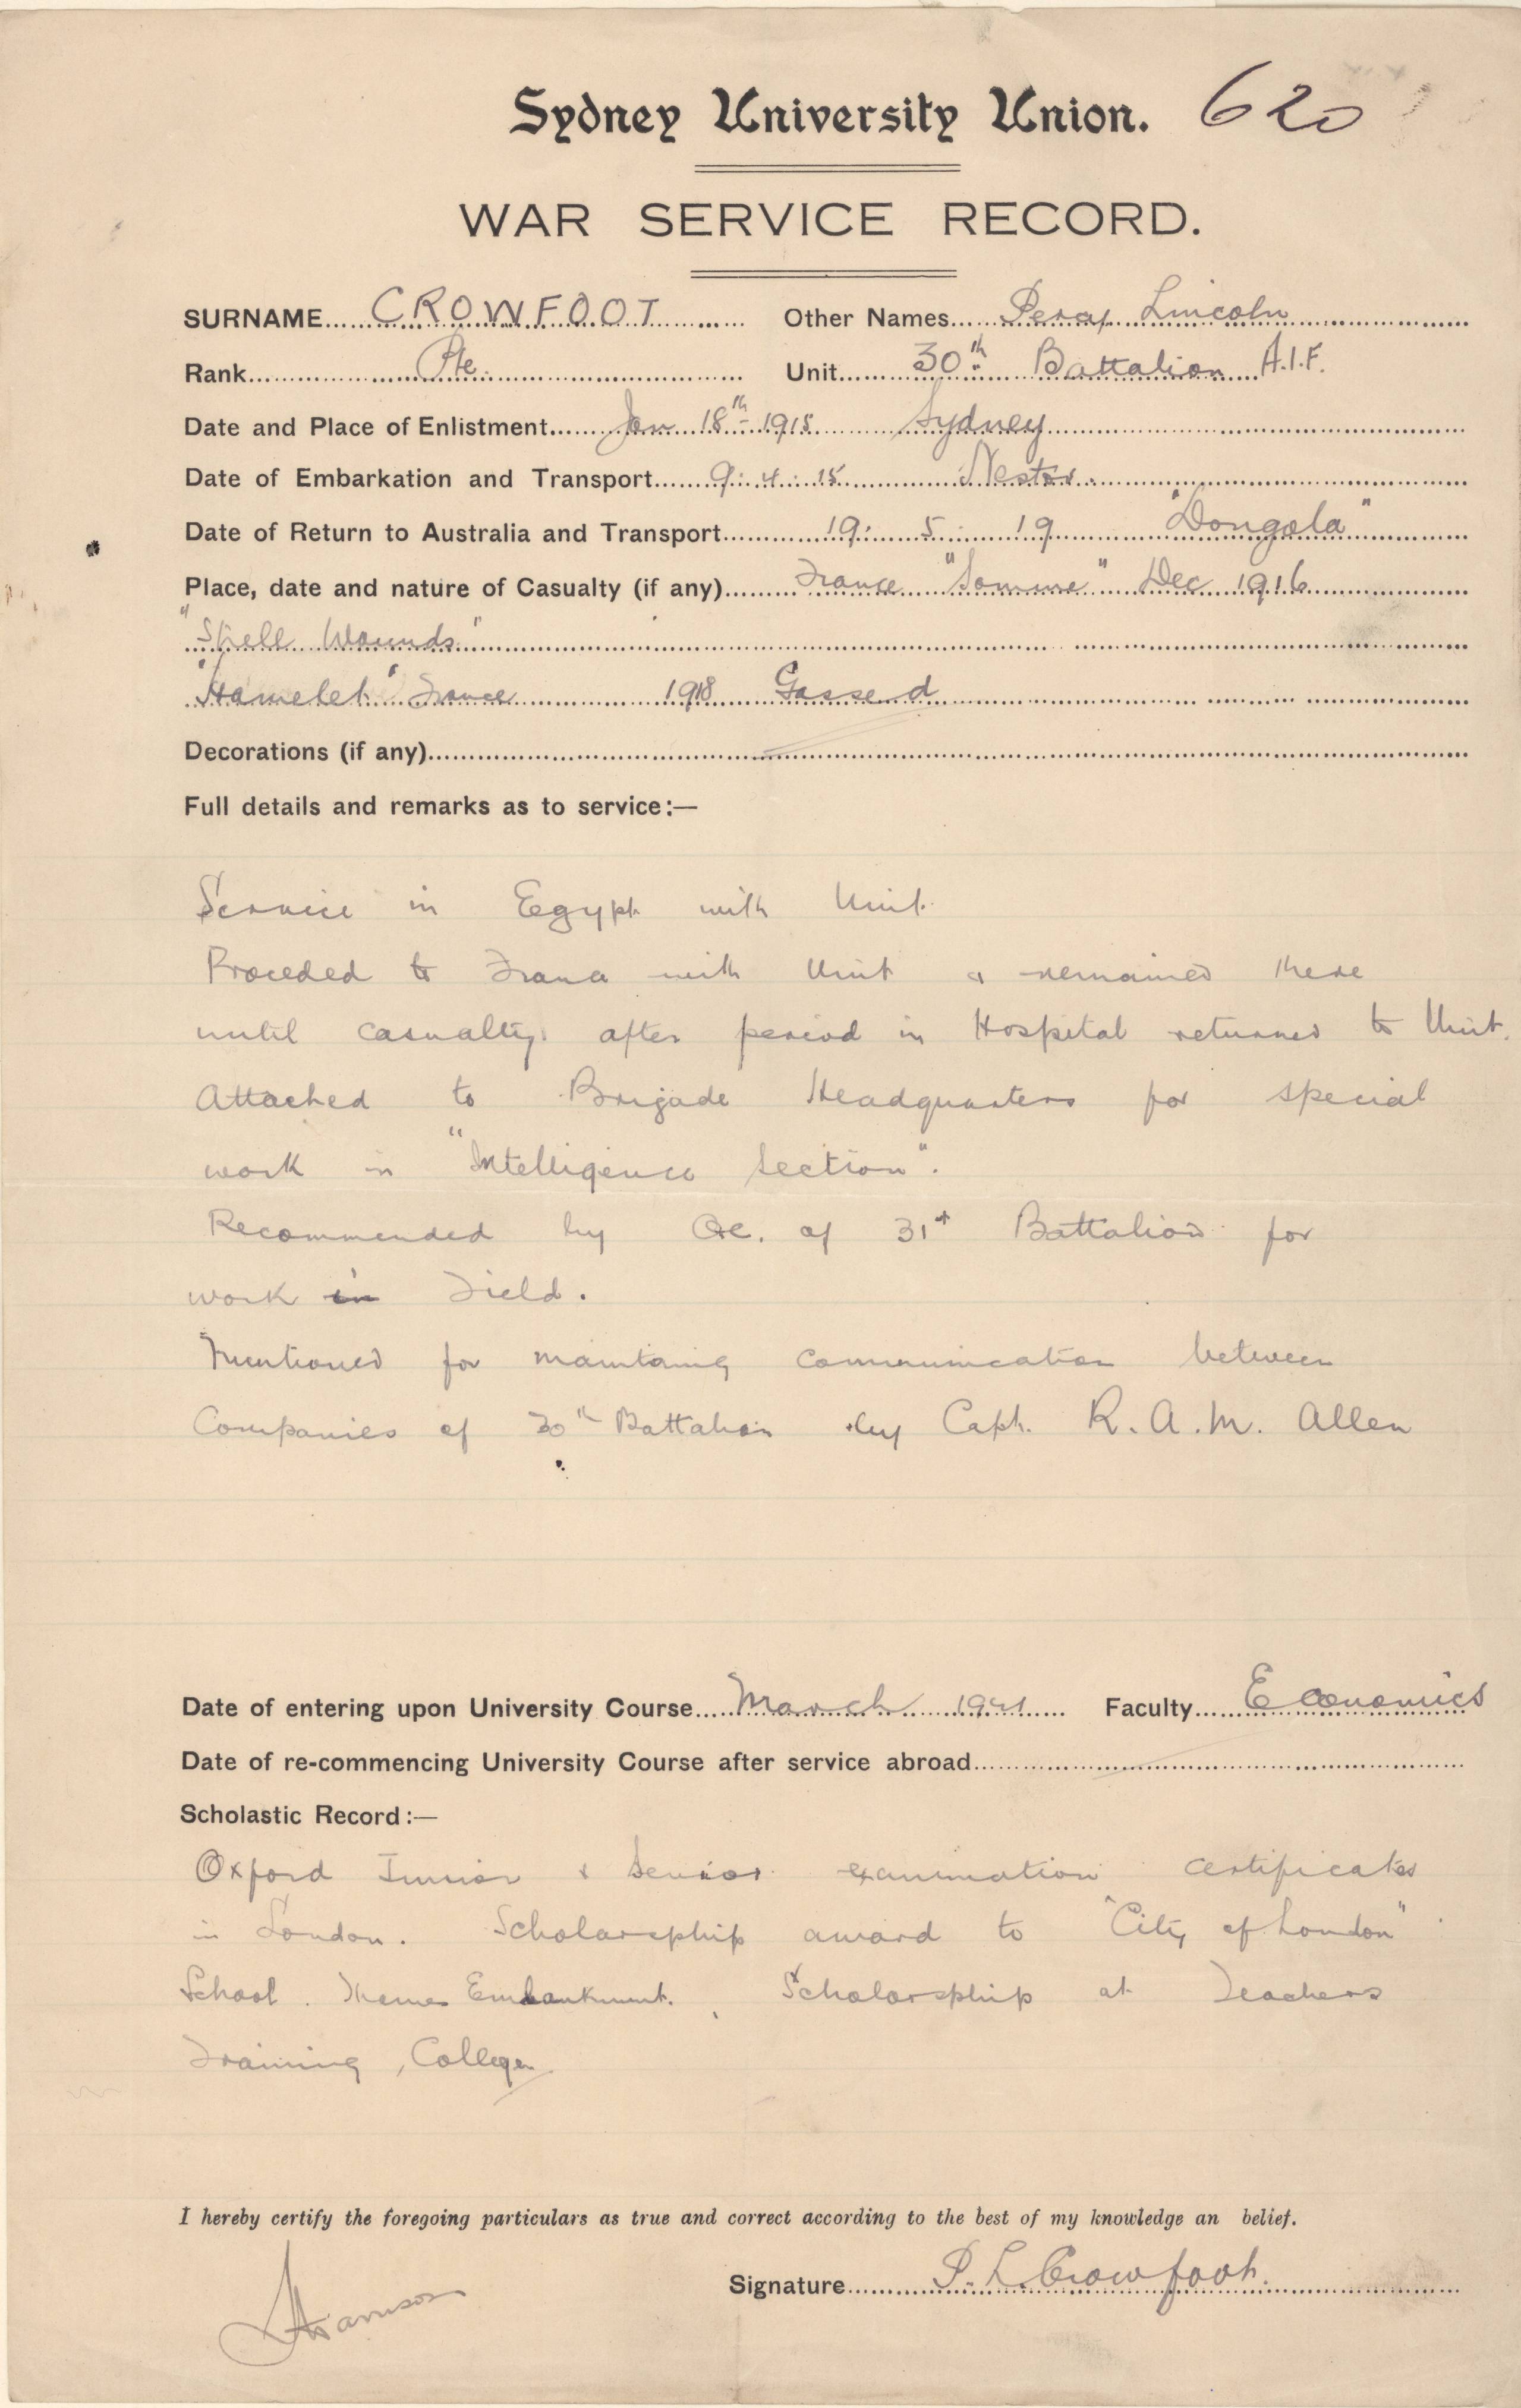 Sydney University Union. 620
WAR SERVICE RECORD.
SURNAME CROWFOOT Other Names Percy Lincoln
Rank Pte. Unit 30th Battalion A.I.F.
Date and Place of Enlistment Jan 18th 1915 Sydney
Date of Embarkation and Transport 9. 4. 15 Nestor.
Date of Return to Australia and Transport 19. 5. 19 "Dongola"
Place, date and nature of Casualty (if any) France "Somme" Dec 1916
"Shell Wounds"
"Hamelet" France 1918 Gassed
Decorations (if any)
Full details and remarks as to service:—
Service in Egypt with Unit.
Proceded to France with Unit & remained there
until casualty. after period in Hospital returned to Unit.
Attached to Brigade Headquarters for special
work in "Intelligence Section".
Recommended by Oc. of 31st Battalion for
work in Field.
Mentioned for maintaing communication between
Companies of 30th Battalion by Capt. R. A. M. Allen
Date of entering upon University Course March 1921 Faculty Economics
Date of re-commencing University Course after service abroad
Scholastic Record:—
Oxford Junior & Senior examination certificates
in London. Scholarship award to "City of London"
School. Thames Embankment. Scholarship at Teachers
Training College
I hereby certify the foregoing particulars as true and correct according to the best of my knowledge an belief.
Signature P. L. Crowfoot.